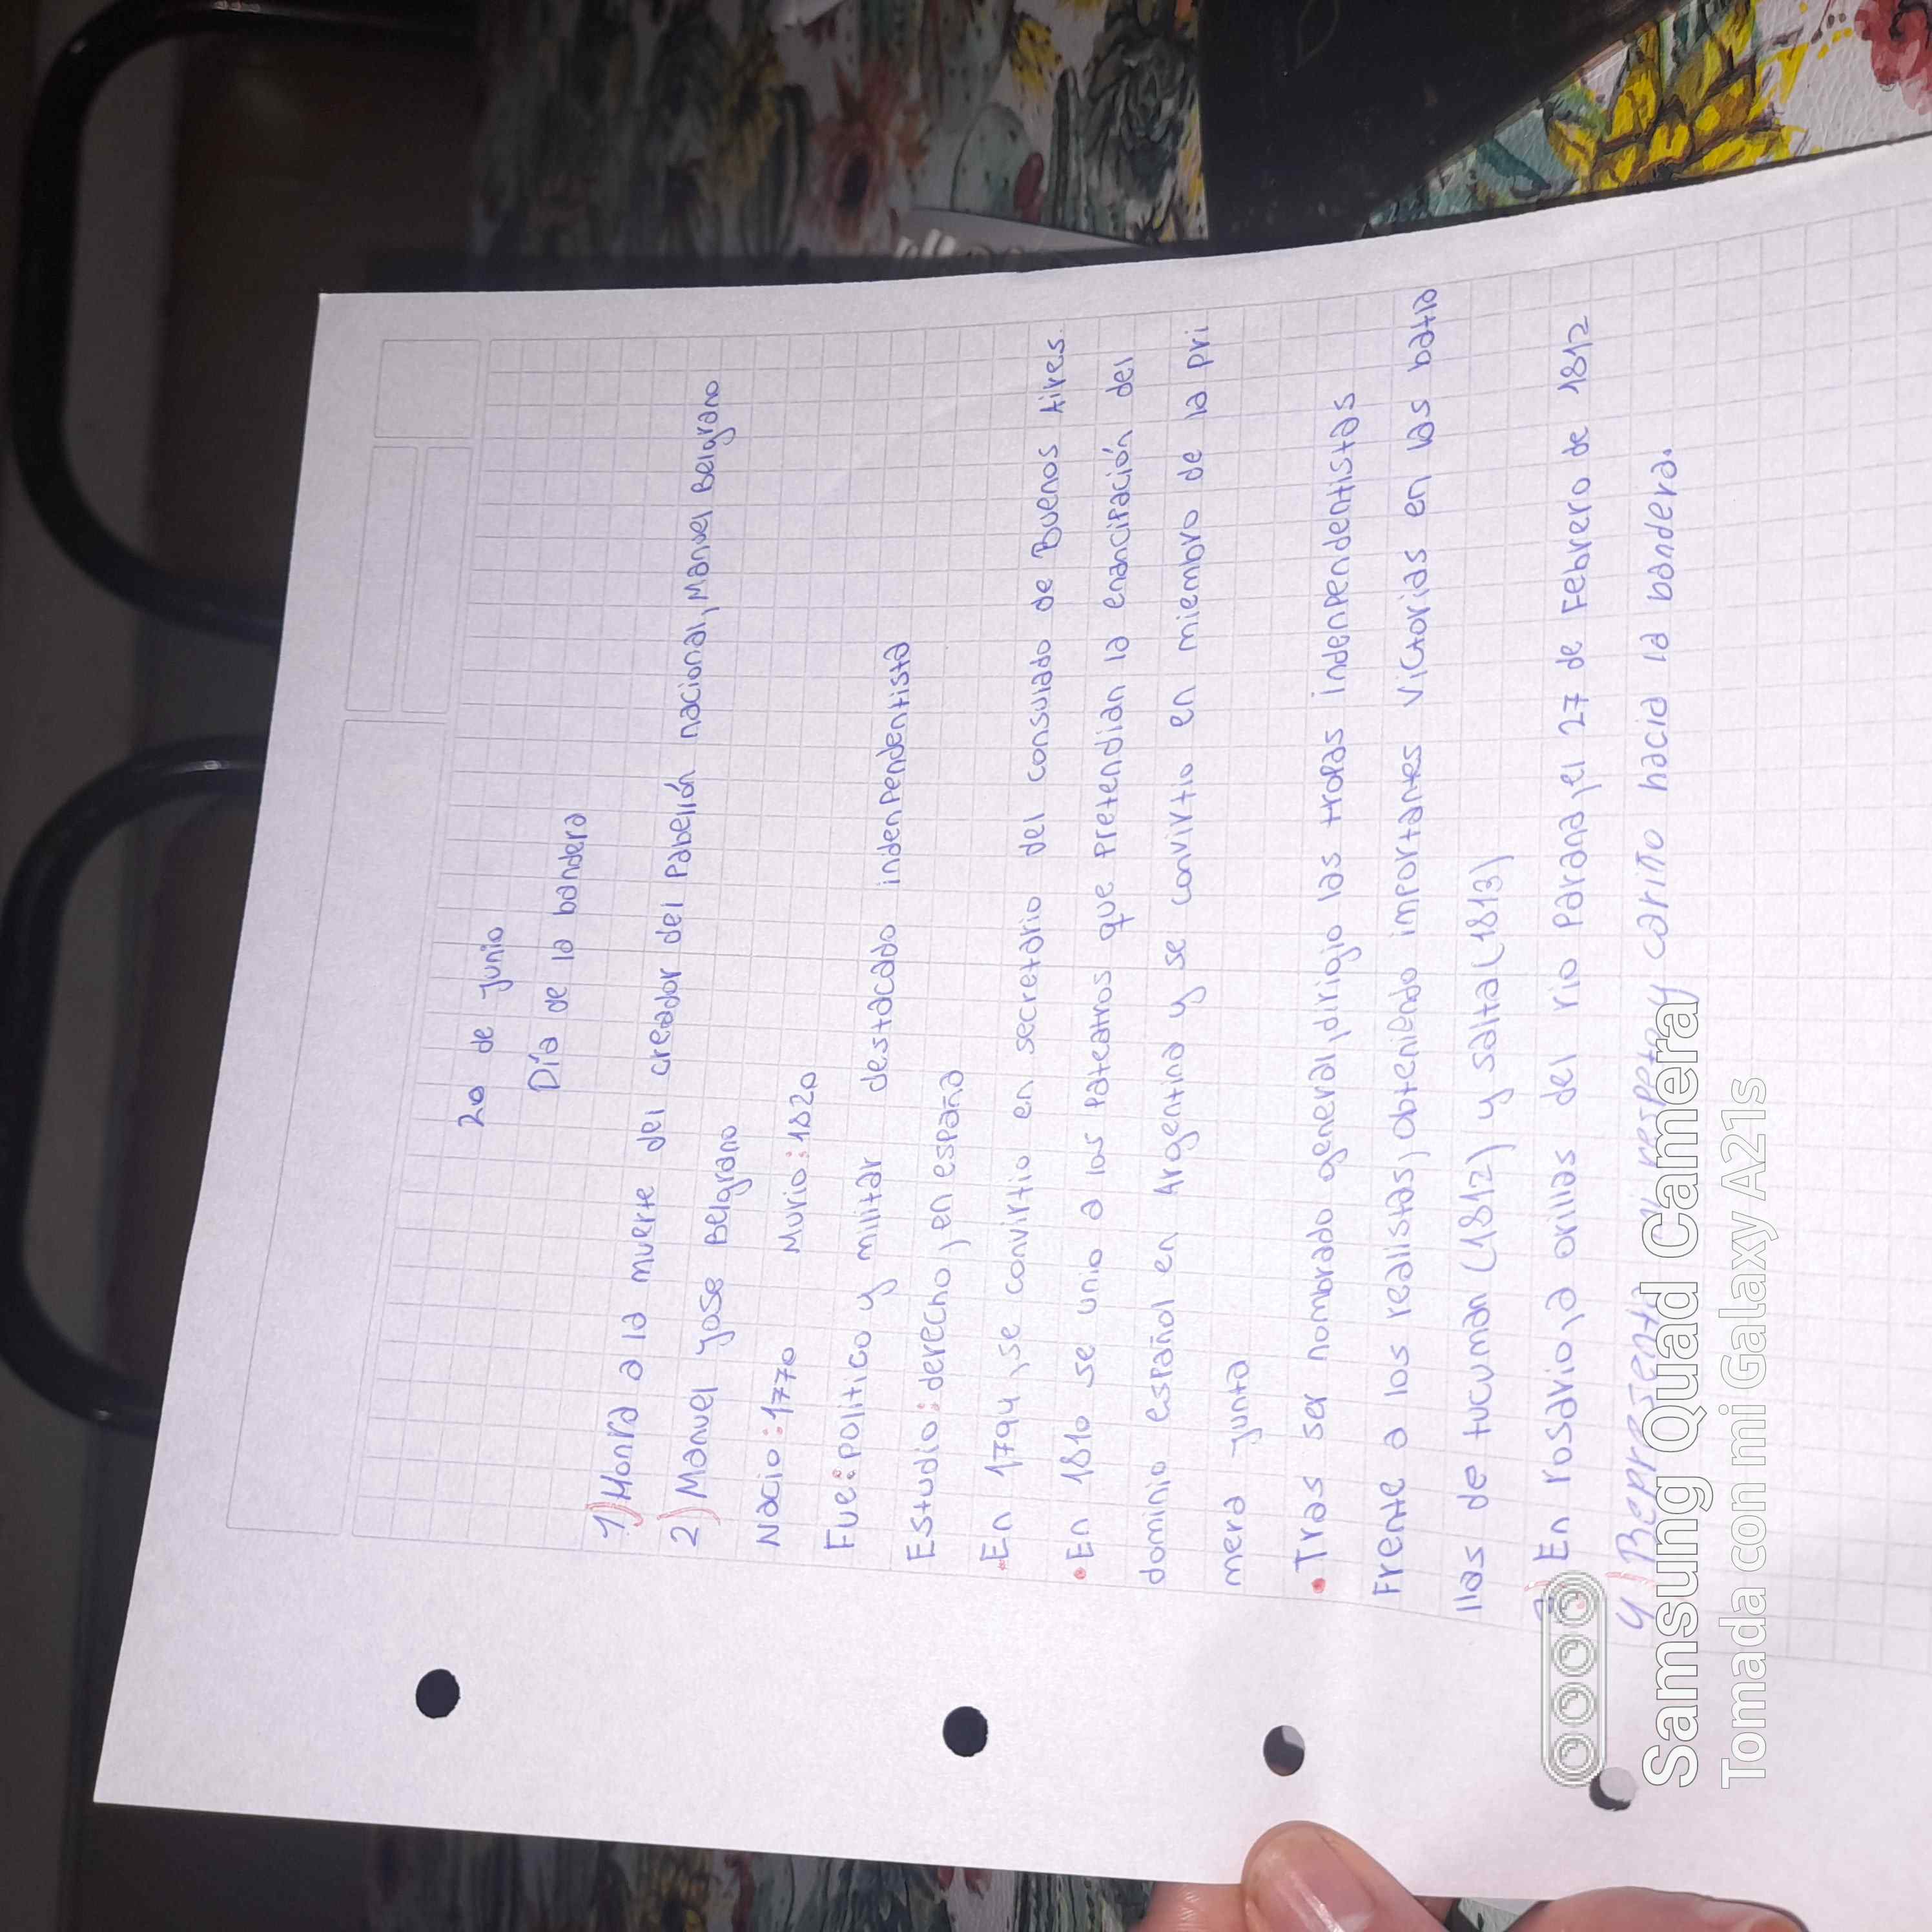 20 de junio
Día de la bandera
1) Honra a la muerte del creador del Pabellón nacional, Manuel Belgrano
2) Manuel jose Belgrano
Nacio: 1770 Murio: 1820
Fue: politico y militar destacado indenpendentista
Estudio: derecho, en españa
• En 1794, se convirtio en secretario del consulado de Buenos Aires.
• En 1810 se unio a los Pateatros que Pretendian la enancipación del
dominio español en Argentina y se convirtio en miembro de la pri
mera junta
• Tras ser nombrado general, dirigio las tropas indenpendentistas
Frente a los realistas, obteniendo importantes victorias en las bata
llas de tucuman (1812) y salta (1813)
En rosario, a orillas del rio Parana, el 27 de Febrero de 1812
4) Representa respeto y cariño hacia la bandera.
Samsung Quad Camera
Tomada con mi Galaxy A21s